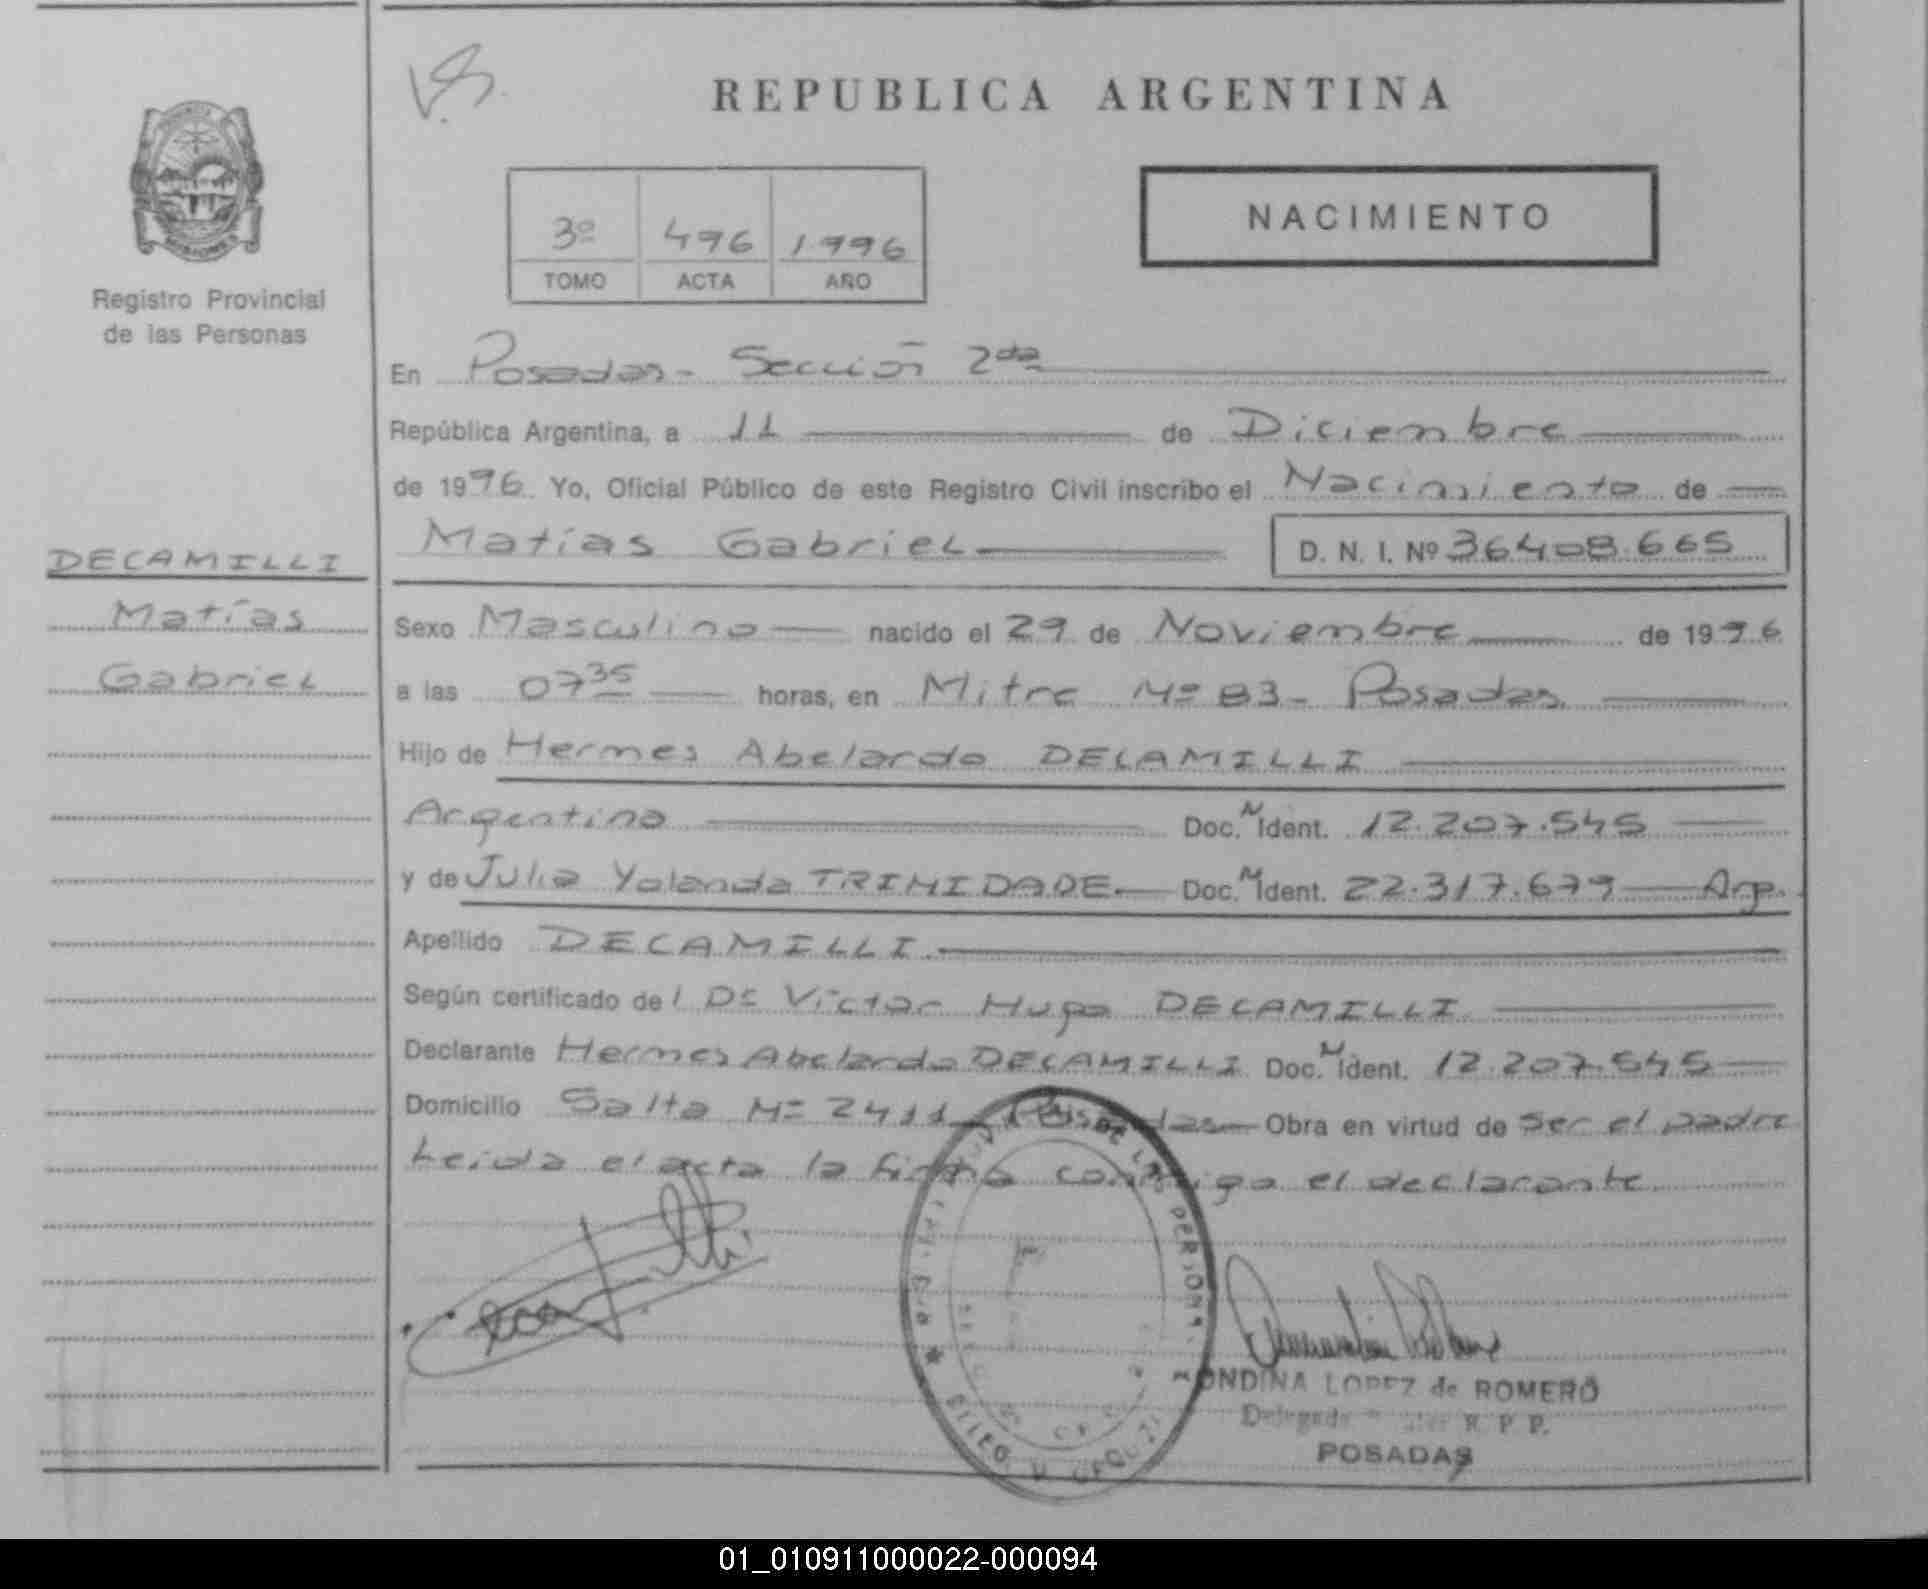 V.B.
REPUBLICA ARGENTINA
3º 496 1.996
TOMO ACTA AÑO
NACIMIENTO
Registro Provincial
de las Personas
En Posadas - Sección 2da
República Argentina, a 11 de Diciembre
de 1996 Yo, Oficial Público de este Registro Civil inscribo el Nacimiento de
Matías Gabriel D. N. I. Nº 36408.665
DECAMILLI
Matías
Gabriel
Sexo Masculino nacido el 29 de Noviembre de 1996
a las 07 35 horas, en Mitre Nº 83 - Posadas
Hijo de Hermes Abelardo DECAMILLI
Argentino Doc. N Ident. 12.207.545
y de Julia Yolanda TRINIDADE Doc. N Ident. 22.317.679 Arg.
Apellido DECAMILLI
Según certificado de l Dr Víctor Hugo DECAMILLI
Declarante Hermes Abelardo DECAMILLI Doc. N Ident. 12.207.545
Domicilio Salta Nº 2411 Posadas Obra en virtud de ser el padre
Leida el acta la firma conmigo el declarante
DE LAS PERSONA
ONDINA LOPEZ de ROMERO
Delegada R. P. P.
POSADAS
01_010911000022-000094